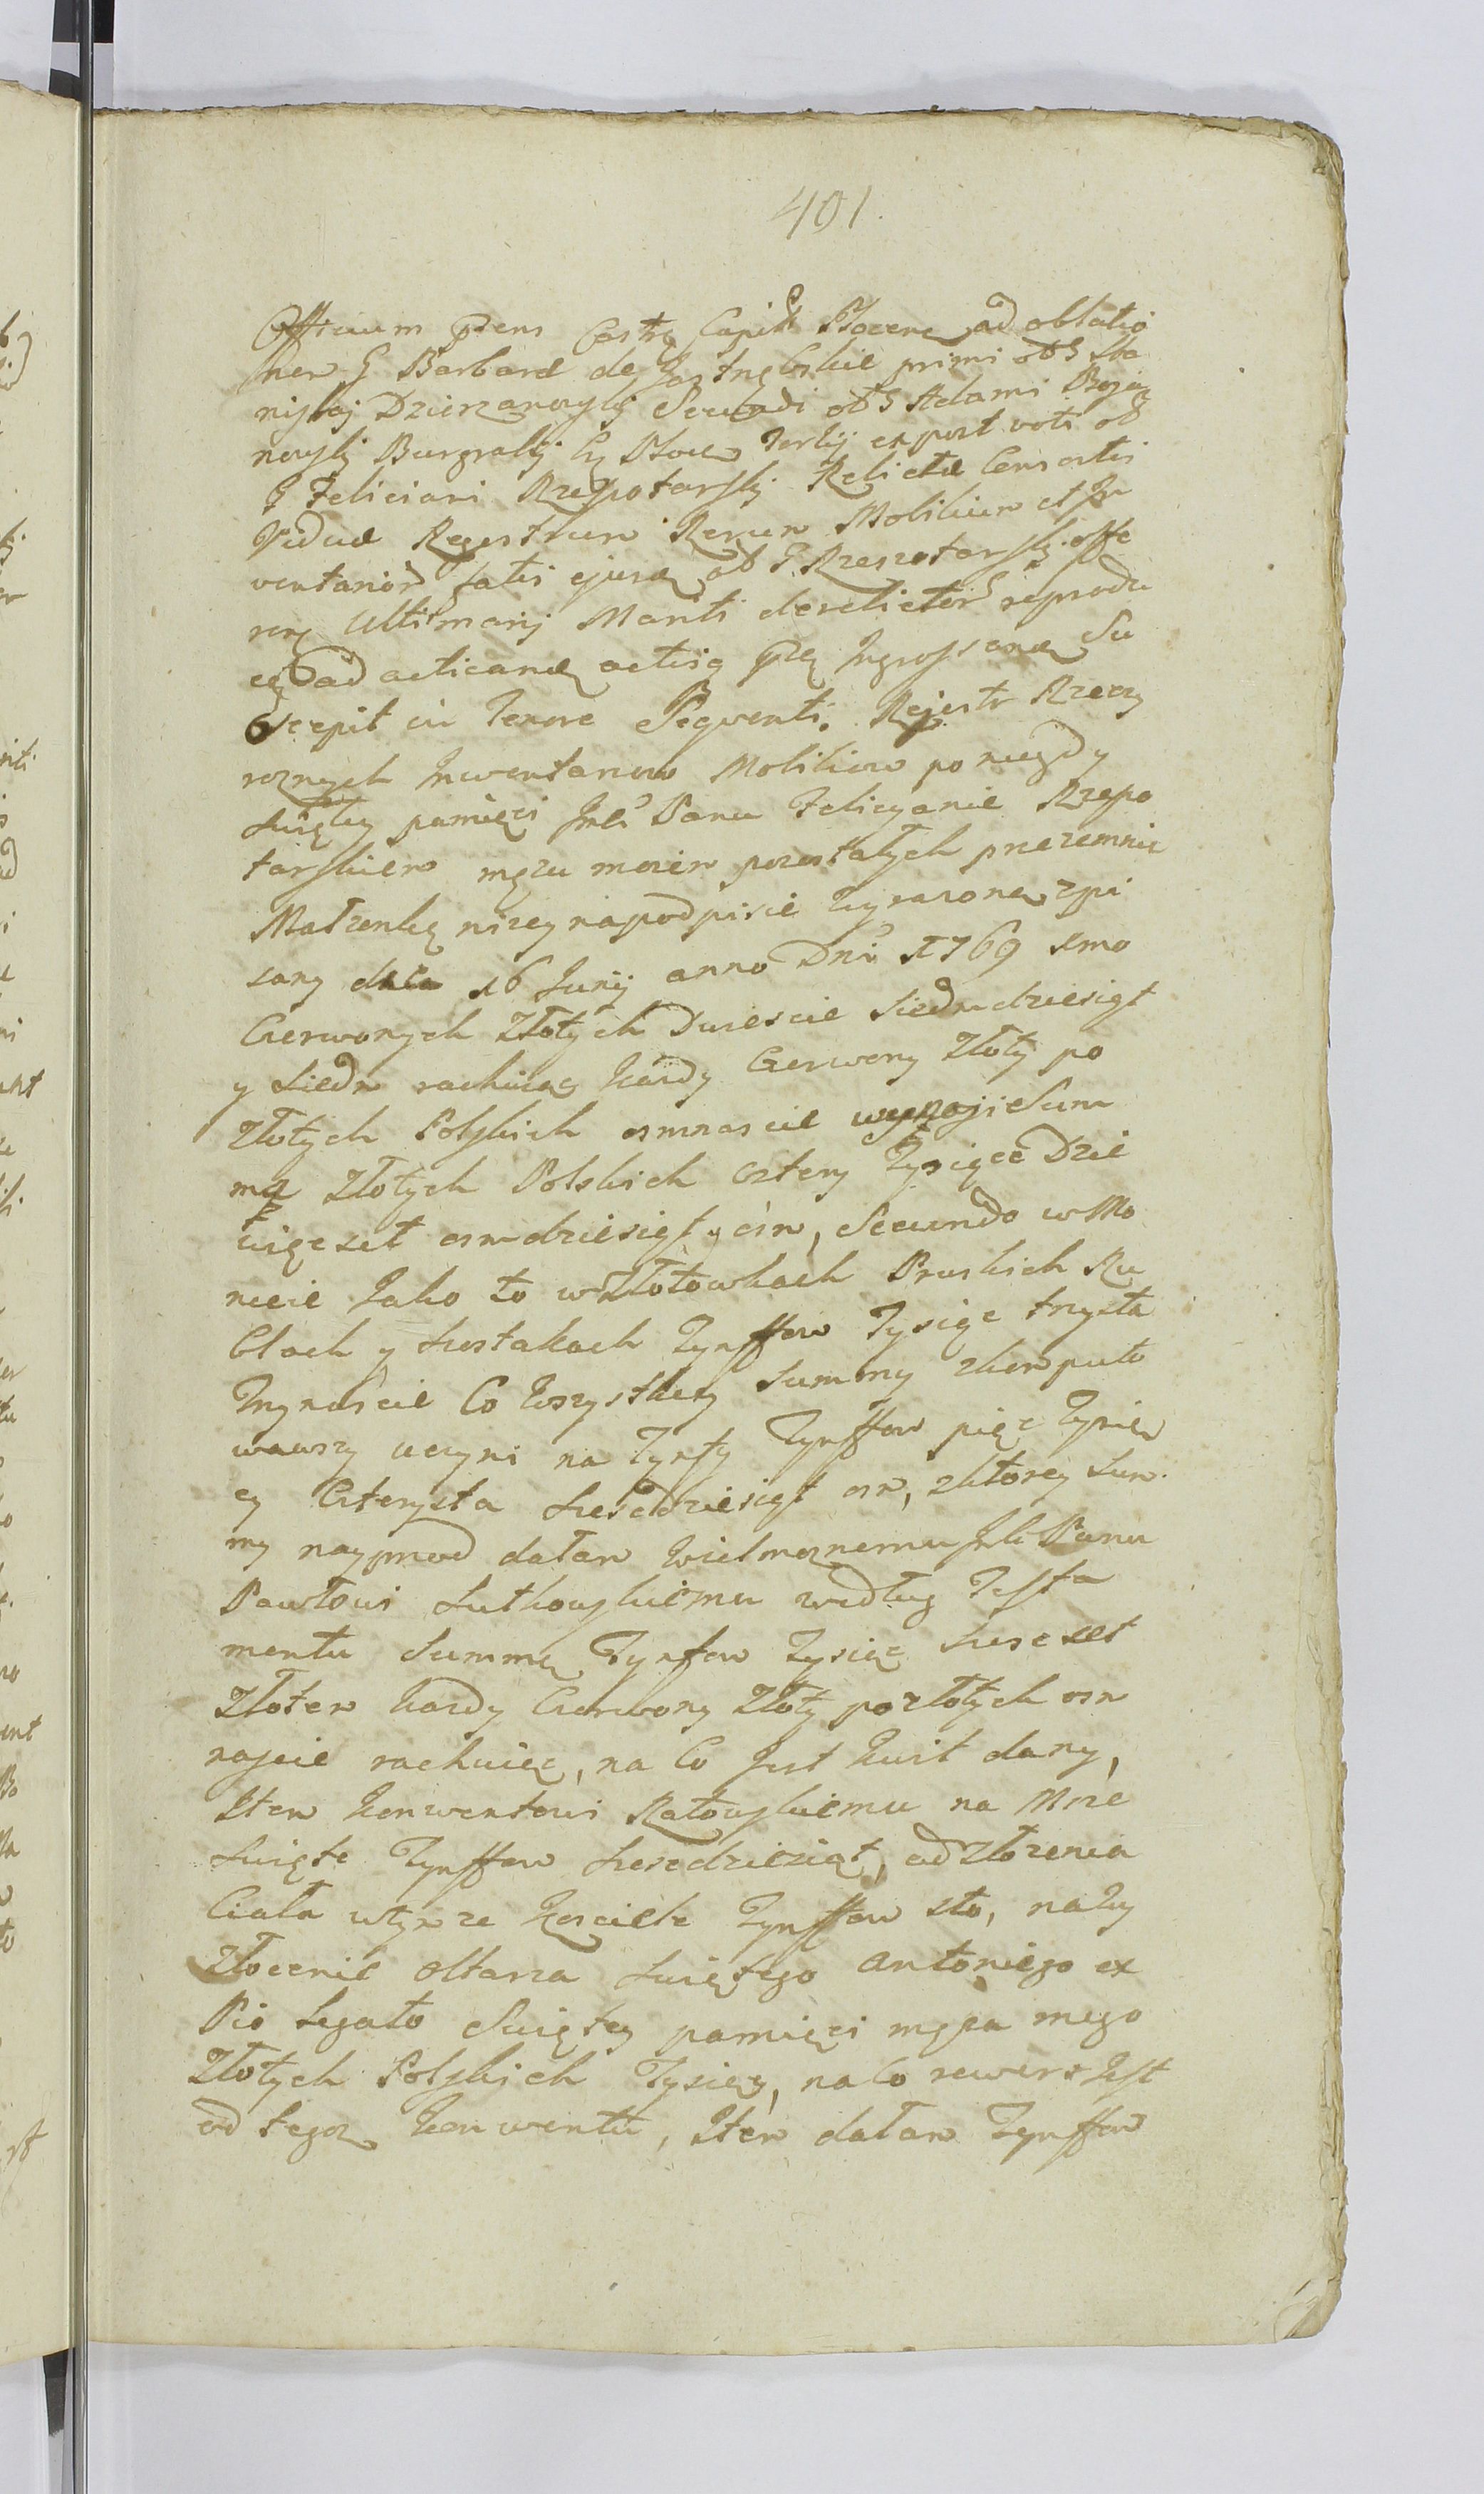 401.
Officium pñens Castrẽ Capitle Plocene ad oblatio
nem G Barbarae de Jastrzębskie primi olỡ G Sta
nislaj Dzierzanowskj Secundi olỡ G Adami Boja
nowskj Burgrabij Cg Plocen Tertij ex post voti olỡ
G Feliciani Rzeszotarskj Relictae Consortis
Viduae Regestrum Rerum Mobilium et In
ventariorũ fatis ejusd olỡ G Rzeszotarskj offe
ren Ultimarij Mariti derelictorũ reprodu
ctũ ad acticand actisq pñtẽ Ingrossand Su
scepit cũ Tenore Sequenti. Rejestr Rzeczy
roznych Inwentarzow Mobiliow po niegdy
Swiętey pamięci Jmci Panu Felicyanie Rzeszo
tarskiem męzu moiem pozostałych przezemnie
Małzonkę nizey na podpisie wyrazoną spi
sany dnia 16 Junij anno Dni 1769 Imo
Czerwonych Złotych Dwiescie Siedmdziesiąt
y Siedm rachuiąc kazdy Czerwony Złoty po
Złotych Polskich osmnascie wynosi Sum
mę Złotych Polskich Cztery Tysiące Dzie
więcset osmdziesiąt y osm, Secundo w Mo
necie Jako to w Złotowkach Pruskich Ru
blach y Szostakach Tynffow Tysiąc trzysta
Trzynascie Co wszystkiey Summy zkompulo
wawszy uczyni na Tynfy Tynffow pięc Tysię
cy Czterysta Szescdziesiąt osm, z ktorey Sum
my nayprzod dałam Wielmoznemu Jmci Panu
Pawłowi Sutkowskiemu według Testa
mentu Summę Tynfow Tysiąc Szescset
Złotem kazdy Czerwony Złoty po złotych osm
nascie rachuiąc, na Co Jest kwit dany,
Item konwentowi Ratowskiemu na Msze
Swięte Tynffow Szescdziesiąt, od złozenia
Ciała w tymze kosciele Tynffow sto, na wy
Złocenie ołtarza Swiętego Antoniego ex
Pio Legato Swiętey pamięci męza mego
Złotych Polskich Tysiąc, na Co rewers Jest
od tegoz konwentu, Item dałam Tynffow